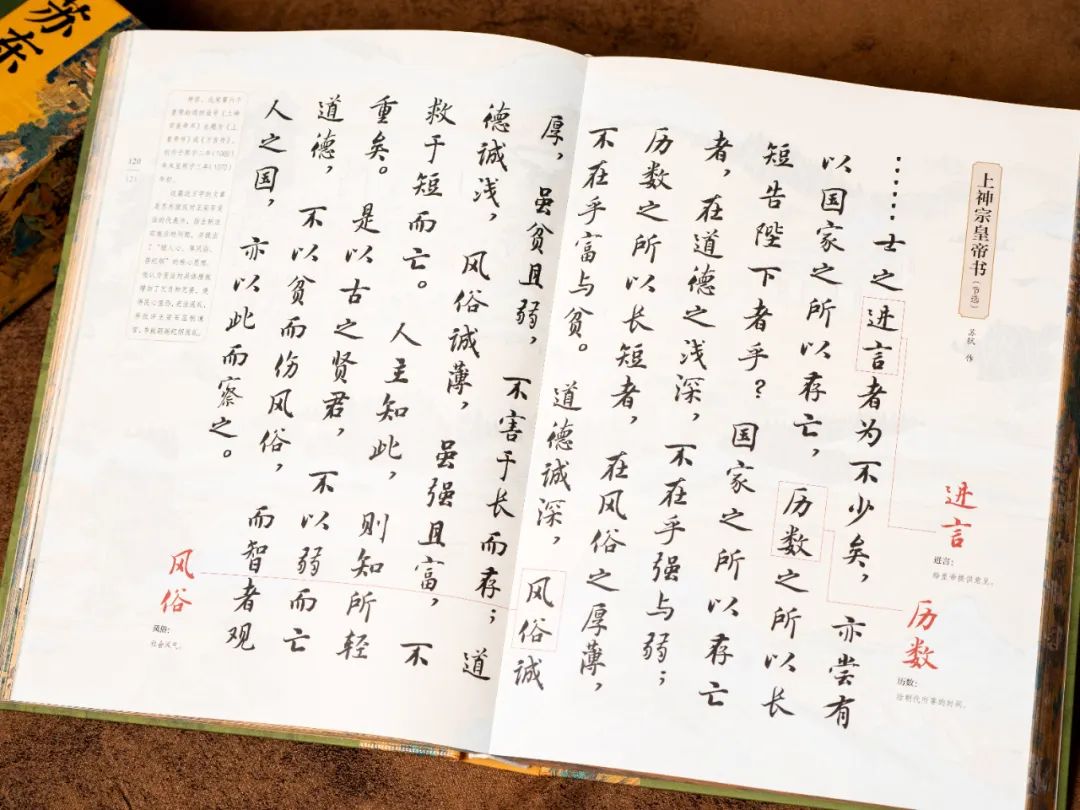 上神宗皇帝书（节选）
苏轼 作
……士之进言者为不少矣，亦尝有
以国家之所以存亡，历数之所以长
短告陛下者乎？国家之所以存亡
者，在道德之浅深，不在乎强与弱；
历数之所以长短者，在风俗之厚薄，
不在乎富与贫。道德诚深，风俗诚
厚，虽贫且弱，不害于长而存；道
德诚浅，风俗诚薄，虽强且富，不
救于短而亡。人主知此，则知所轻
重矣。是以古之贤君，不以弱而亡
道德，不以贫而伤风俗，而智者观
人之国，亦以此而察之。
进言
进言：
给皇帝提供意见。
历数
历数：
指朝代所享的时间。
风俗
风俗：
社会风气。
120
121
苏东